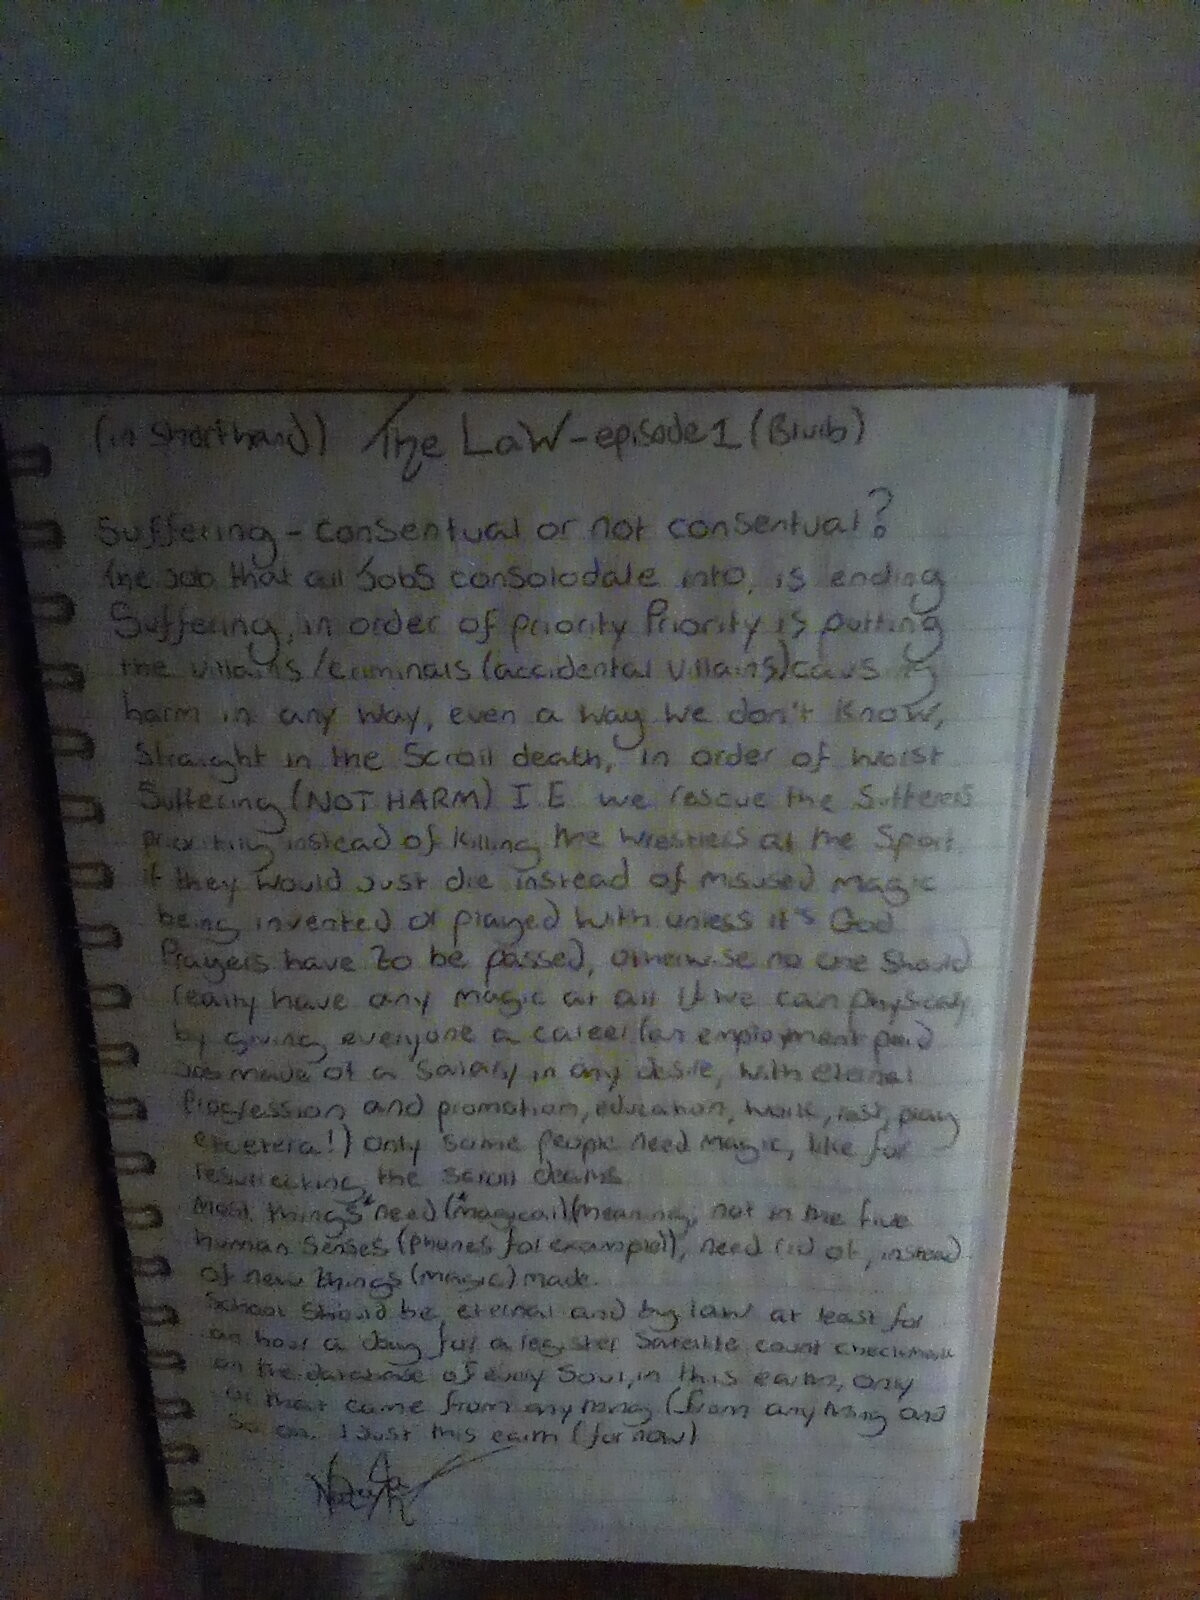 (in shorthand) The LaW - episode 1 (Blurb)
Suffering - consentual or not consentual?
The Job that all Jobs consolodate into, is ending
Suffering, in order of priority Priority is putting
the villains/criminals (accidental villains) causing
harm in any way, even a way we don't know,
Straight in the Scroll death, in order of worst
Suffering (NOT HARM) I.E we rescue the Sufferers
instead of killing the wrestlers at the Sport
if they would just die instead of misused magic
being invented or played with unless it's God
Prayers have to be passed, otherwise no one should
really have any magic at all if we can physically
by giving everyone a career (an employment paid
Job made of a salary in any desire, with eternal
Progression and promotion, education, work, rest, play
etcetera!) only some people need magic, like for
resurrecting the scroll deaths
Most things* need (*magical)(meaning, not in the five
human senses (phones for example)), need rid of, instead
of new things (magic) made.
School should be eternal and by law at least for
an hour a day for a register Satellite count checkmark
on the database of every Soul, in this earth, only
that came from anything (from anything and
So on.) Just this earth (for now)